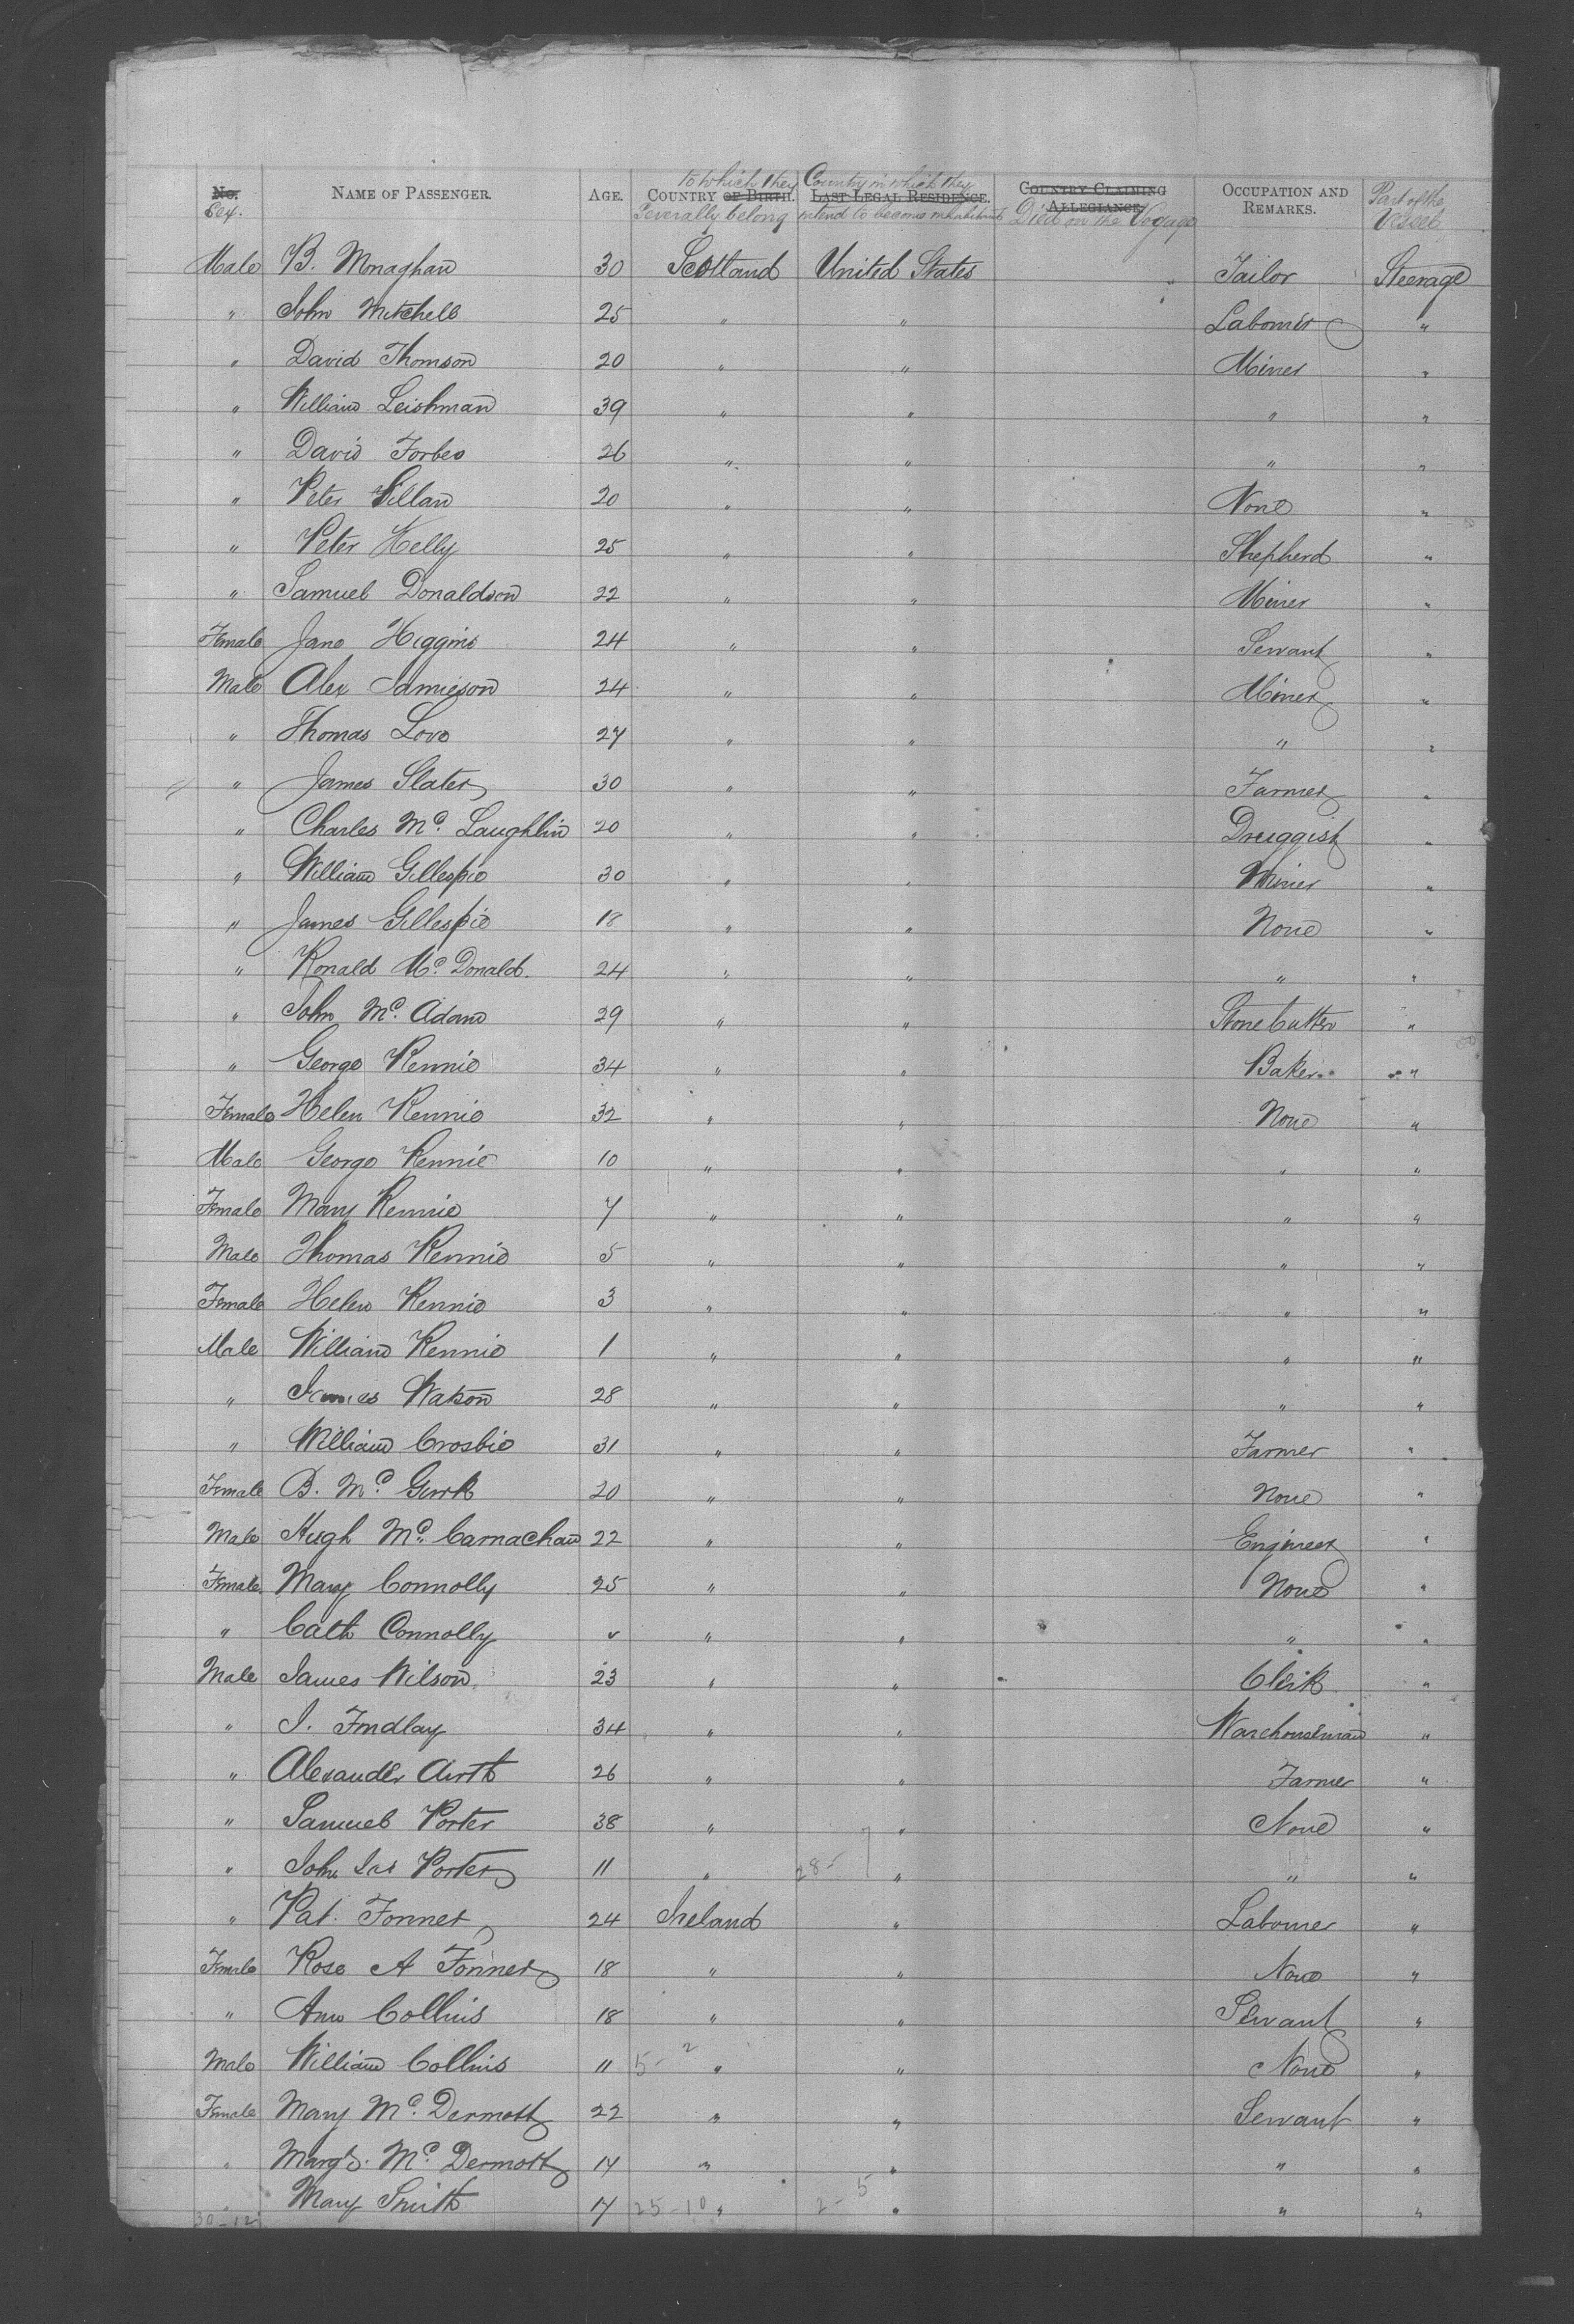 No. NAME OF PASSENGER. AGE. COUNTRY OF BIRTH. LAST LEGAL RESIDENCE. COUNTRY CLAIMING ALLEGIANCE. OCCUPATION AND REMARKS. Part of the Vessel
Sex. to which they Severally belong Country in which they intend to become inhabitants Died on the Voyage
Male B. Monaghan 30 Scotland United States " Tailor Steerage
" John Mitchell 25 " " Labourer "
" David Thomson 20 " " Miner "
" William Leishman 39 " " " "
" David Forbes 26 " " " "
" Peter Gillan 20 " " None "
" Peter Kelly 25 " " Shepherd "
" Samuel Donaldson 22 " " Miner "
Female Jane Higgins 24 " " Servant "
Male Alex Jamieson 24 " " Miner "
" Thomas Love 27 " " " "
" James Slater 30 " " Farmer "
" Charles Mc. Laughlin 20 " " Druggist "
" William Gillespie 30 " " Miner "
" James Gillespie 18 " " None "
" Ronald Mc. Donald. 24 " " " "
" John Mc. Adam 29 " " Stone Cutter "
" George Rennie 34 " " Baker "
Female Helen Rennie 32 " " None "
Male George Rennie 10 " " " "
Female Mary Rennie 7 " " " "
Male Thomas Rennie 5 " " " "
Female Helen Rennie 3 " " " "
Male William Rennie 1 " " " "
" James Watson 28 " " " "
" William Crosbie 31 " " Farmer "
Female B. Mc. Gurk 20 " " None "
Male Hugh Mc. Carnachan 22 " " Engineer "
Female Mary Connolly 25 " " None "
" Cath Connolly " " " "
Male James Wilson 23 " " Clerk "
" J. Findlay 34 " " Warehouseman "
" Alexander Airth 26 " " Farmer "
" Samuel Porter 38 " " None "
" John Jas Porter 11 " 28- " " "
" Pat. Fonner 24 Ireland " Labourer "
Female Rose A Fonner 18 " " None "
" Ann Collins 18 " " Servant "
Male William Collins 11 5-2 " " None "
Female Mary Mc. Dermott 22 " " Servant "
" Margt. Mc. Dermott 14 " " " "
" Mary Smith 17 25-10 " 2-5 " " "
30-12